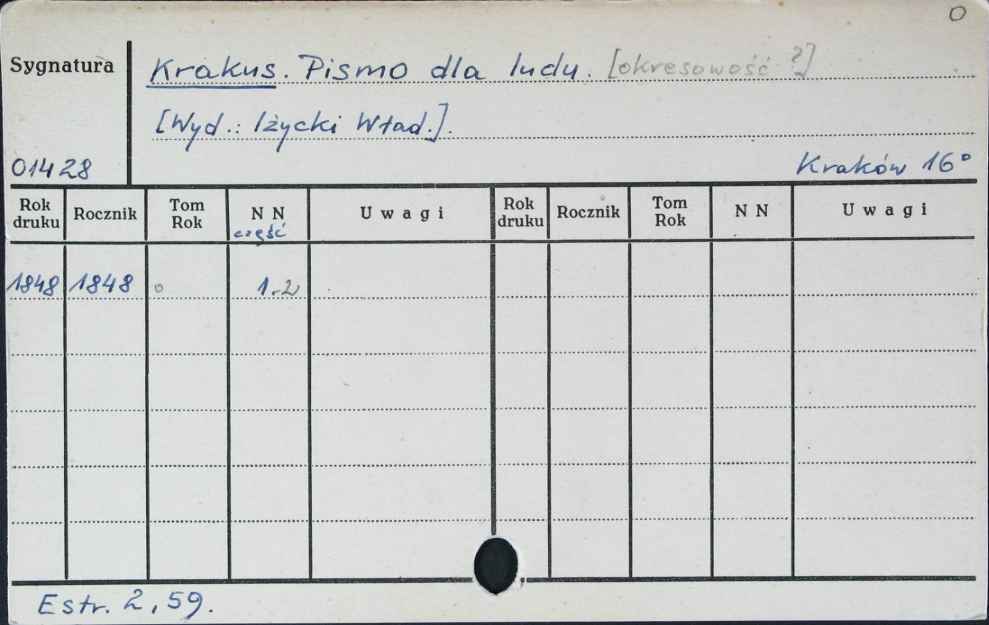 O
Sygnatura
Krakus. Pismo dla ludu. [okresowość ?]
[Wyd.: Iżycki Wład.].
01428
Kraków 16°
Rok druku Rocznik Tom Rok N N część U w a g i Rok druku Rocznik Tom Rok N N U w a g i
1848 1848 o 1.2
Estr. 2, 59.